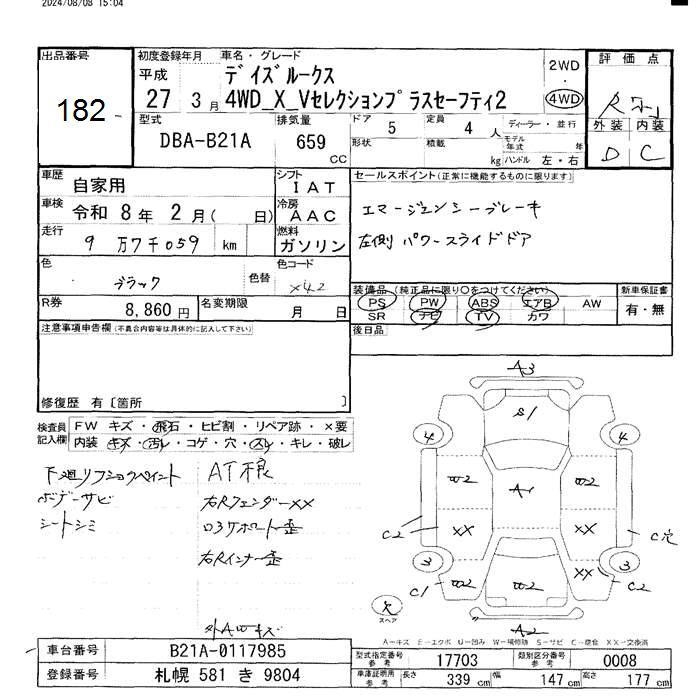 2024/08/08 15:04
出品番号
182
初度登録年月 車名・グレード
平成 27 3月
デイズルークス
4WD_X_Vセレクションプラスセーフティ2
2WD
4WD
評価点
外装 内装
D C
型式 DBA-B21A
排気量 659 CC
ドア 5
形状
定員 4 人
積載 kg
ディーラー・並行
モデル年式 年
ハンドル 左・右
車歴 自家用
車検 令和 8年 2月( 日)
走行 9万7千059 km
シフト IAT
冷房 AAC
燃料 ガソリン
色 ブラック
色替
色コード X42
R券 8,860円
名変期限 月 日
セールスポイント(正常に機能するものに限ります)
エマージェンシーブレーキ
左側 パワースライドドア
装備品(純正品に限り○をつけてください)
PS PW ABS エアB AW
SR ナビ TV カワ
新車保証書
有・無
後日品
注意事項申告欄(不具合内容等は具体的に記入して下さい)
修復歴 有〔箇所 〕
検査員記入欄
FW キズ・飛石・ヒビ割・リペア跡・×要
内装 キズ・汚レ・コゲ・穴・スレ・キレ・破レ
ボデーサビ
シートシミ
右Rフェンダー××
右Rインナー歪
A3
S1
4 4
W2 A1 W2
C2 XX XX C穴
3 3
XX
C1 W2 W2 C2
スペア
A2
A-キズ E-エクボ U-凹み W-補修跡 S-サビ C-腐食 XX-交換済
車台番号 B21A-0117985
登録番号 札幌 581 き 9804
型式指定番号 参考 17703
類別区分番号 参考 0008
車庫証明用 参考 長さ 339 cm 幅 147 cm 高さ 177 cm